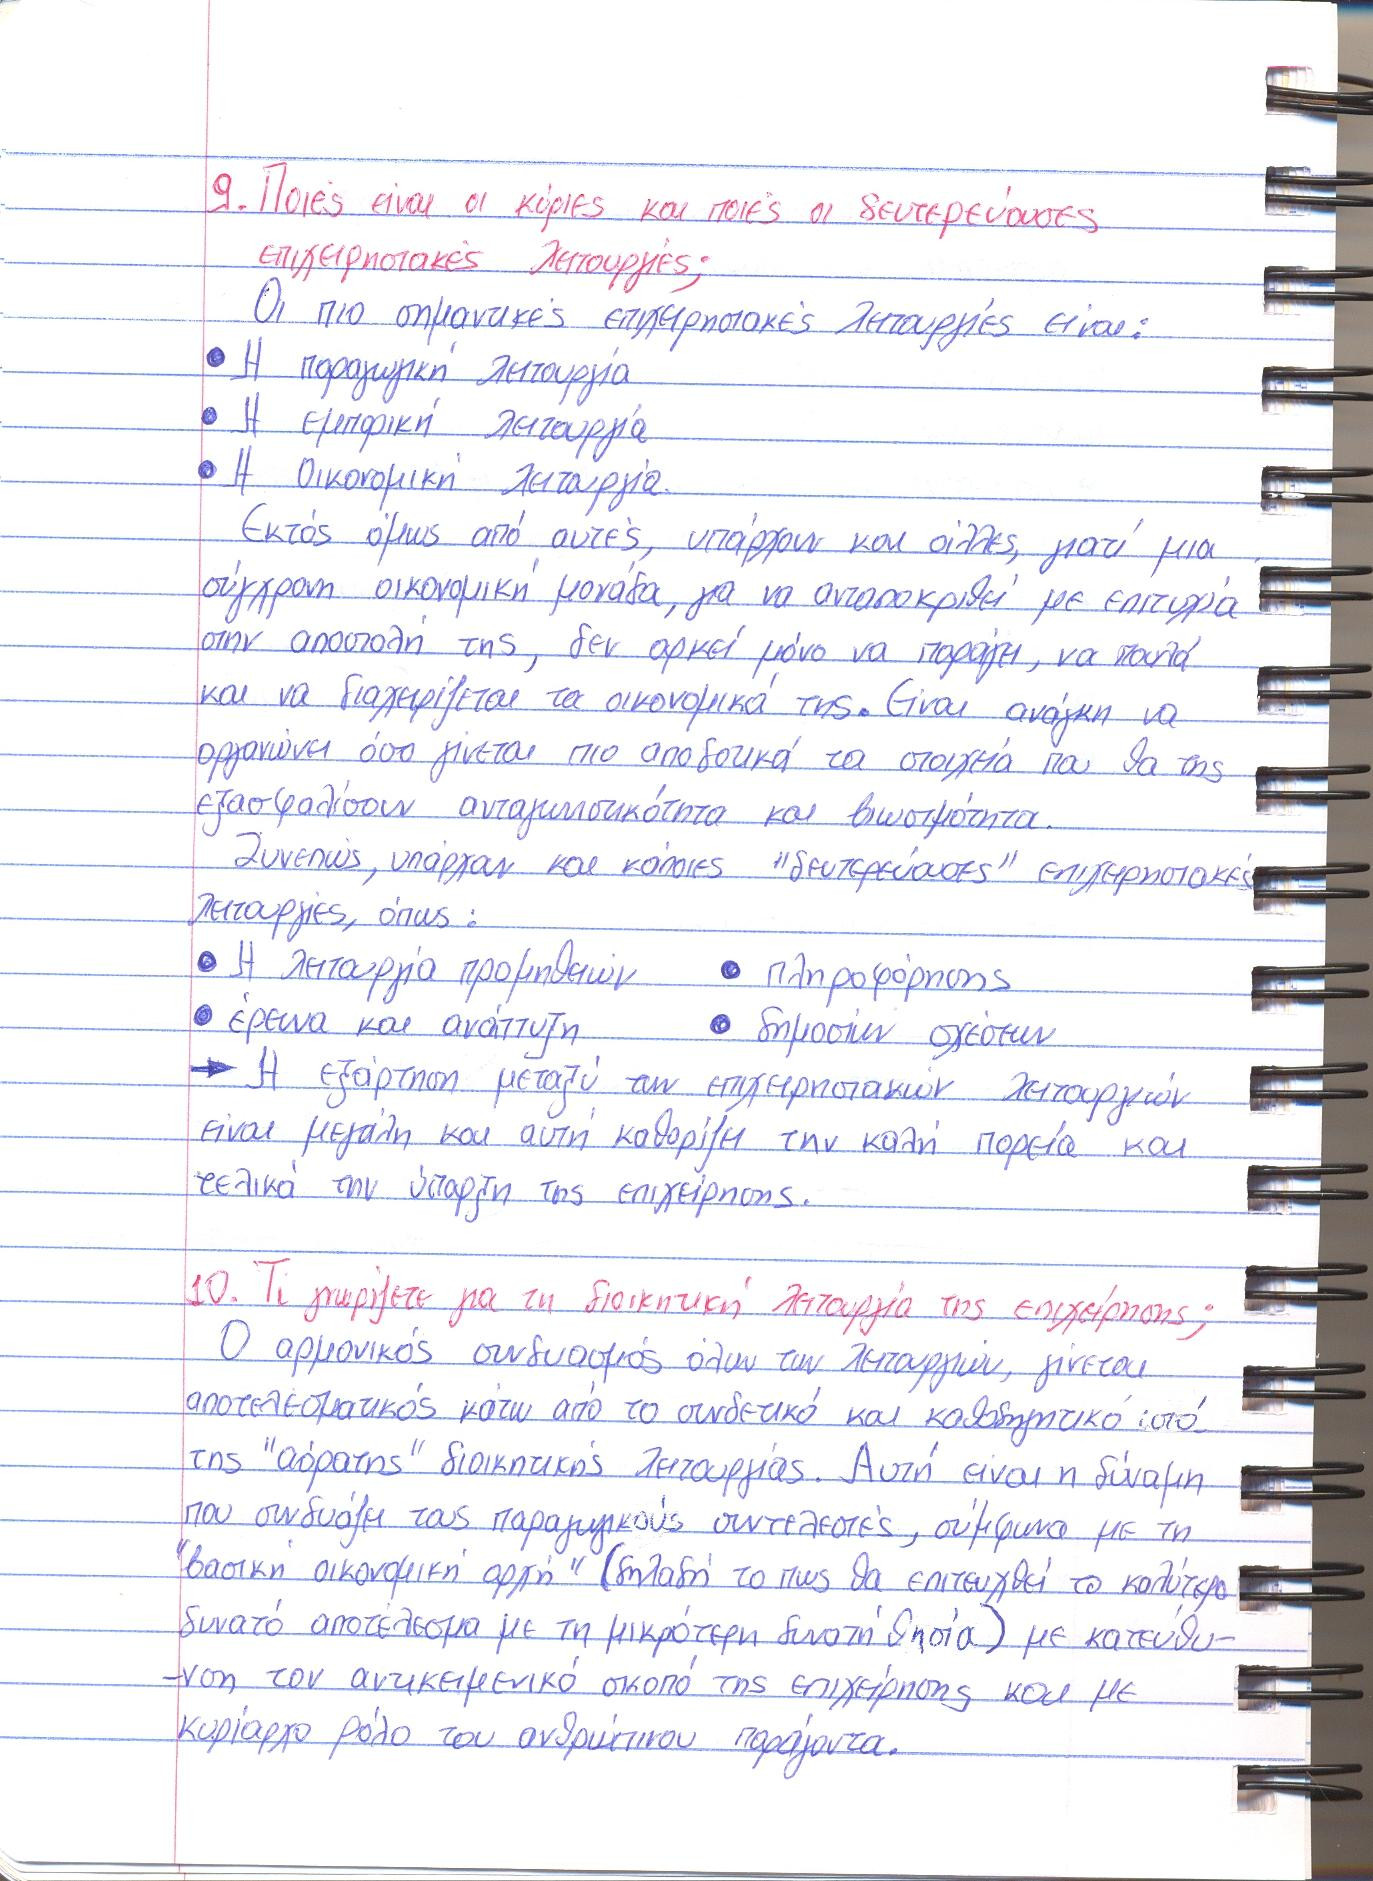 9. Ποιές είναι οι κύριες και ποιές οι δευτερεύουσες
επιχειρησιακές λειτουργίες;
Οι πιο σημαντικές επιχειρησιακές λειτουργίες είναι:
• Η παραγωγική λειτουργία
• Η εμπορική λειτουργία
• Η Οικονομική λειτουργία.
Εκτός όμως από αυτές, υπάρχουν και άλλες, γιατί μια
σύγχρονη οικονομική μονάδα, για να ανταποκριθεί με επιτυχία
στην αποστολή της, δεν αρκεί μόνο να παράγει, να πουλά
και να διαχειρίζεται τα οικονομικά της. Είναι ανάγκη να
οργανώνει όσο γίνεται πιο αποδοτικά τα στοιχεία που θα της
εξασφαλίσουν ανταγωνιστικότητα και βιωσιμότητα.
Συνεπώς, υπάρχουν και κάποιες "δευτερεύουσες" επιχειρησιακές
λειτουργίες, όπως:
• Η λειτουργία προμηθειών • πληροφόρησης
• έρευνα και ανάπτυξη • δημοσίων σχέσεων
→ Η εξάρτηση μεταξύ των επιχειρησιακών λειτουργιών
είναι μεγάλη και αυτή καθορίζει την καλή πορεία και
τελικά την ύπαρξη της επιχείρησης.
10. Τι γνωρίζετε για τη διοικητική λειτουργία της επιχείρησης;
Ο αρμονικός συνδυασμός όλων των λειτουργιών, γίνεται
αποτελεσματικός κάτω από το συνδετικό και καθοδηγητικό ιστό
της "αόρατης" διοικητικής λειτουργίας. Αυτή είναι η δύναμη
που συνδυάζει τους παραγωγικούς συντελεστές, σύμφωνα με τη
"βασική οικονομική αρχή" (δηλαδή το πως θα επιτευχθεί το καλύτερο
δυνατό αποτέλεσμα με τη μικρότερη δυνατή θησία) με κατεύθυ-
-νση τον αντικειμενικό σκοπό της επιχείρησης και με
κυρίαρχο ρόλο του ανθρώπινου παράγοντα.